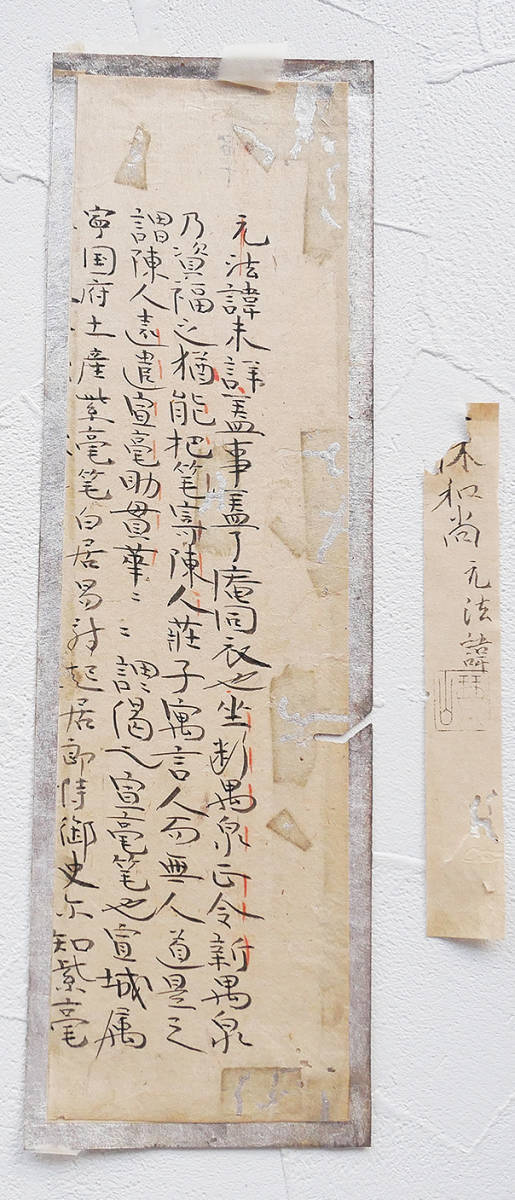 元法諱未詳蓋事蓋了庵同衣也坐断禺泉正令新禺泉
乃資福之猶能把筆寄陳人莊子寓言人而無人道是之
謂陳人遠遣宣毫助貫華〻〻謂偈之宣毫笔也宣城属
寧国府土産紫毫笔白居易詩起居郎侍御史尓知紫毫
和尚 元法諱